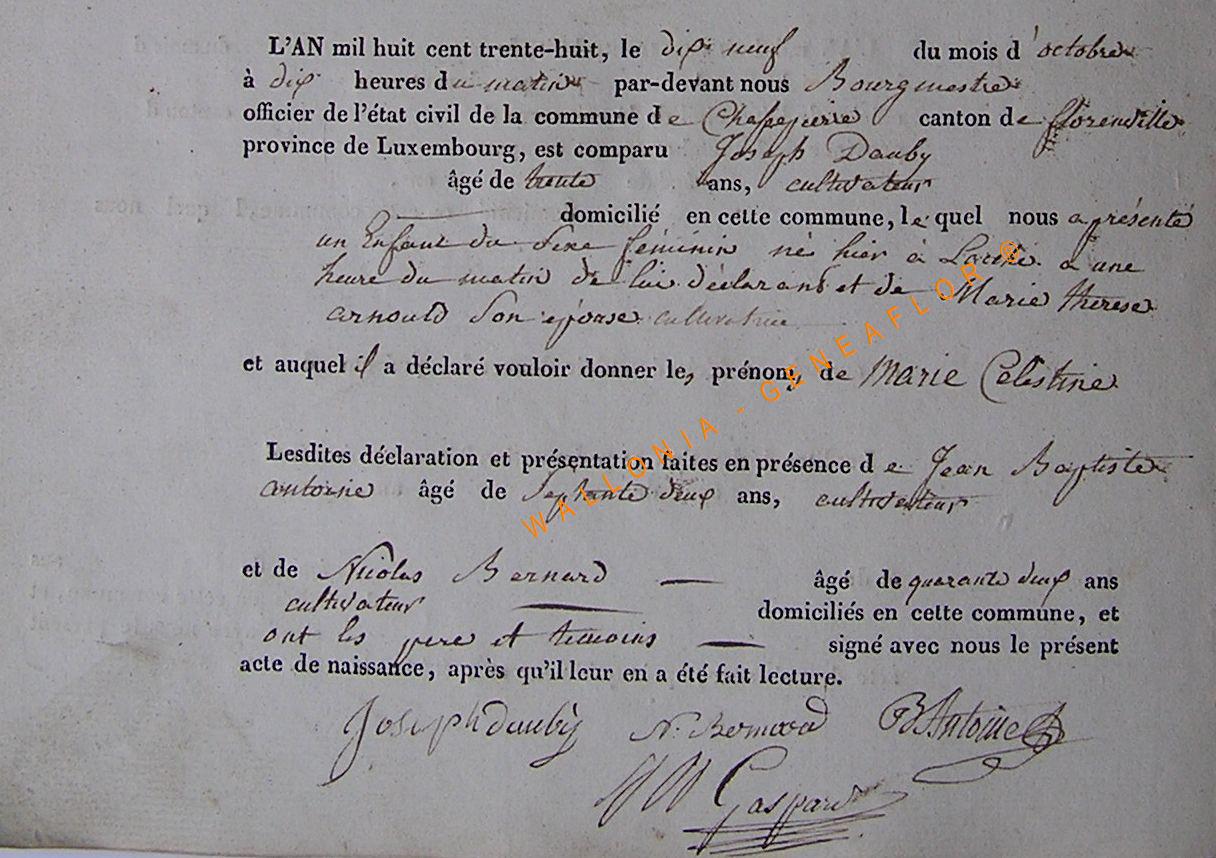 L'AN mil huit cent trente-huit, le dix neuf du mois d'octobre
à dix heures du matin par-devant nous Bourgmestre
officier de l'état civil de la commune de Chassepierre canton de florenville
province de Luxembourg, est comparu Joseph Dauby
âgé de trente ans, cultivateur
domicilié en cette commune, le quel nous a présenté
un Enfant du Sexe féminin né hier à une
heure du matin de lui déclarant et de Marie thérèse
arnould Son épouse cultivatrice
et auquel il a déclaré vouloir donner les prénoms de Marie Celestine
Lesdites déclaration et présentation faites en présence de Jean Baptiste
antoine âgé de Septante deux ans, cultivateur
et de Nicolas Bernard âgé de quarante deux ans
cultivateur domiciliés en cette commune, et
ont les pere et temoins signé avec nous le présent
acte de naissance, après qu'il leur en a été fait lecture.
Joseph dauby N. Bernard B Antoine
Gaspard
WALLONIA - GENEAFLOR ®